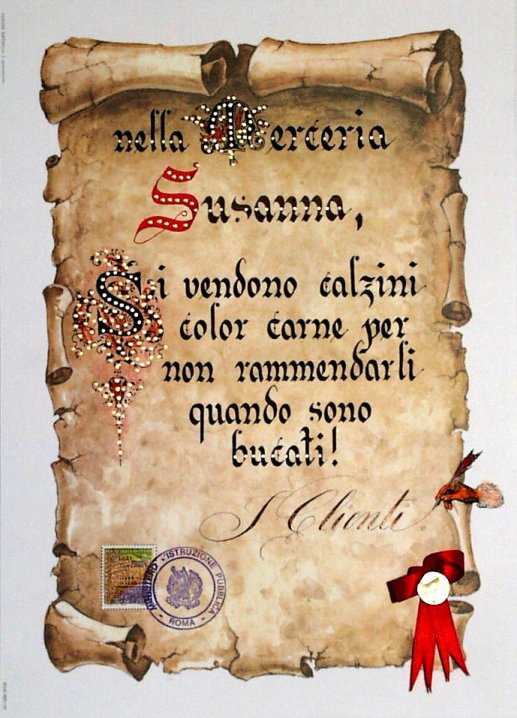 nella Merceria
Susanna,
Si vendono calzini
color carne per
non rammendarli
quando sono
bucati!
I Clienti
MINISTERO • ISTRUZIONE PUBBLICA • ROMA •